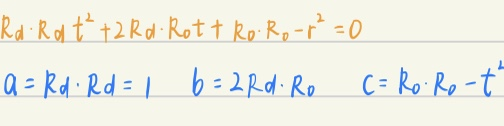 Rd · Rd t² + 2Rd · Rot + Ro · Ro - r² = 0
a = Rd · Rd = 1 b = 2Rd · Ro c = Ro · Ro - t²